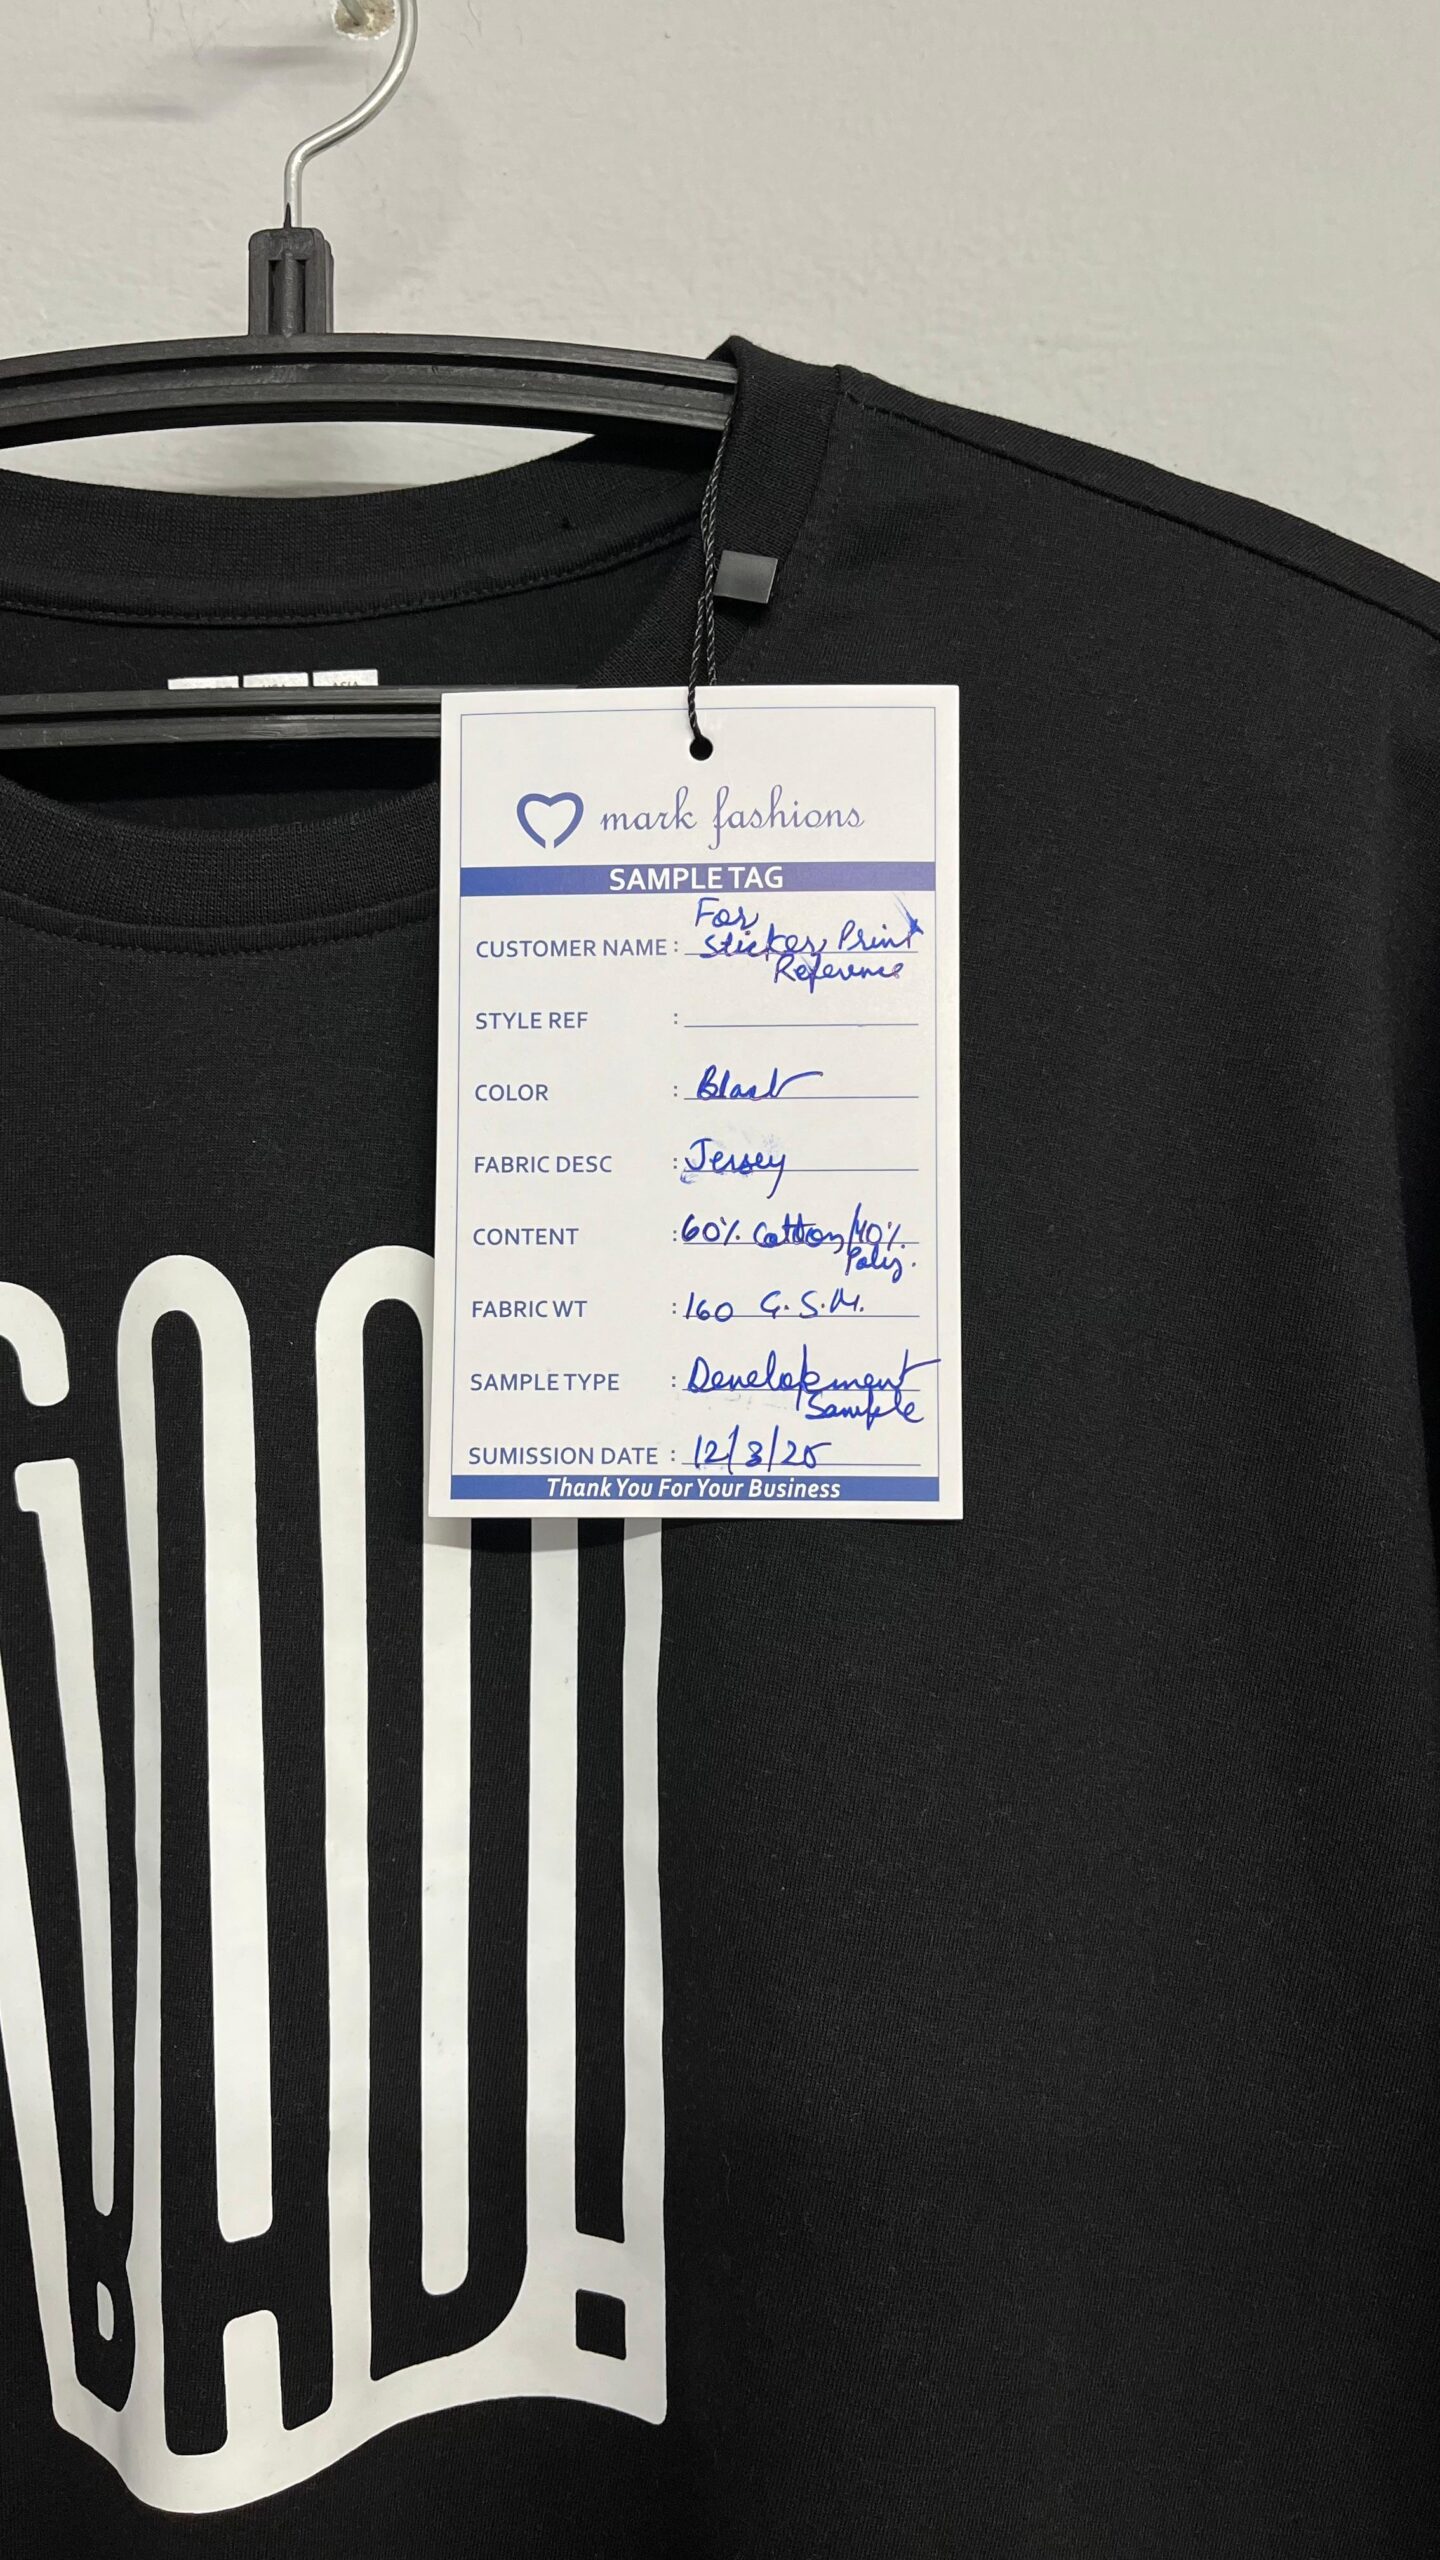 ASIA
mark fashions
SAMPLE TAG
For
CUSTOMER NAME : Sticker Print
Reference
STYLE REF :
COLOR : Black
FABRIC DESC : Jersey
CONTENT : 60% Cotton/40%
Poly.
FABRIC WT : 160 G.S.M.
SAMPLE TYPE : Development
Sample
SUMISSION DATE : 12/3/25
Thank You For Your Business
BAD!